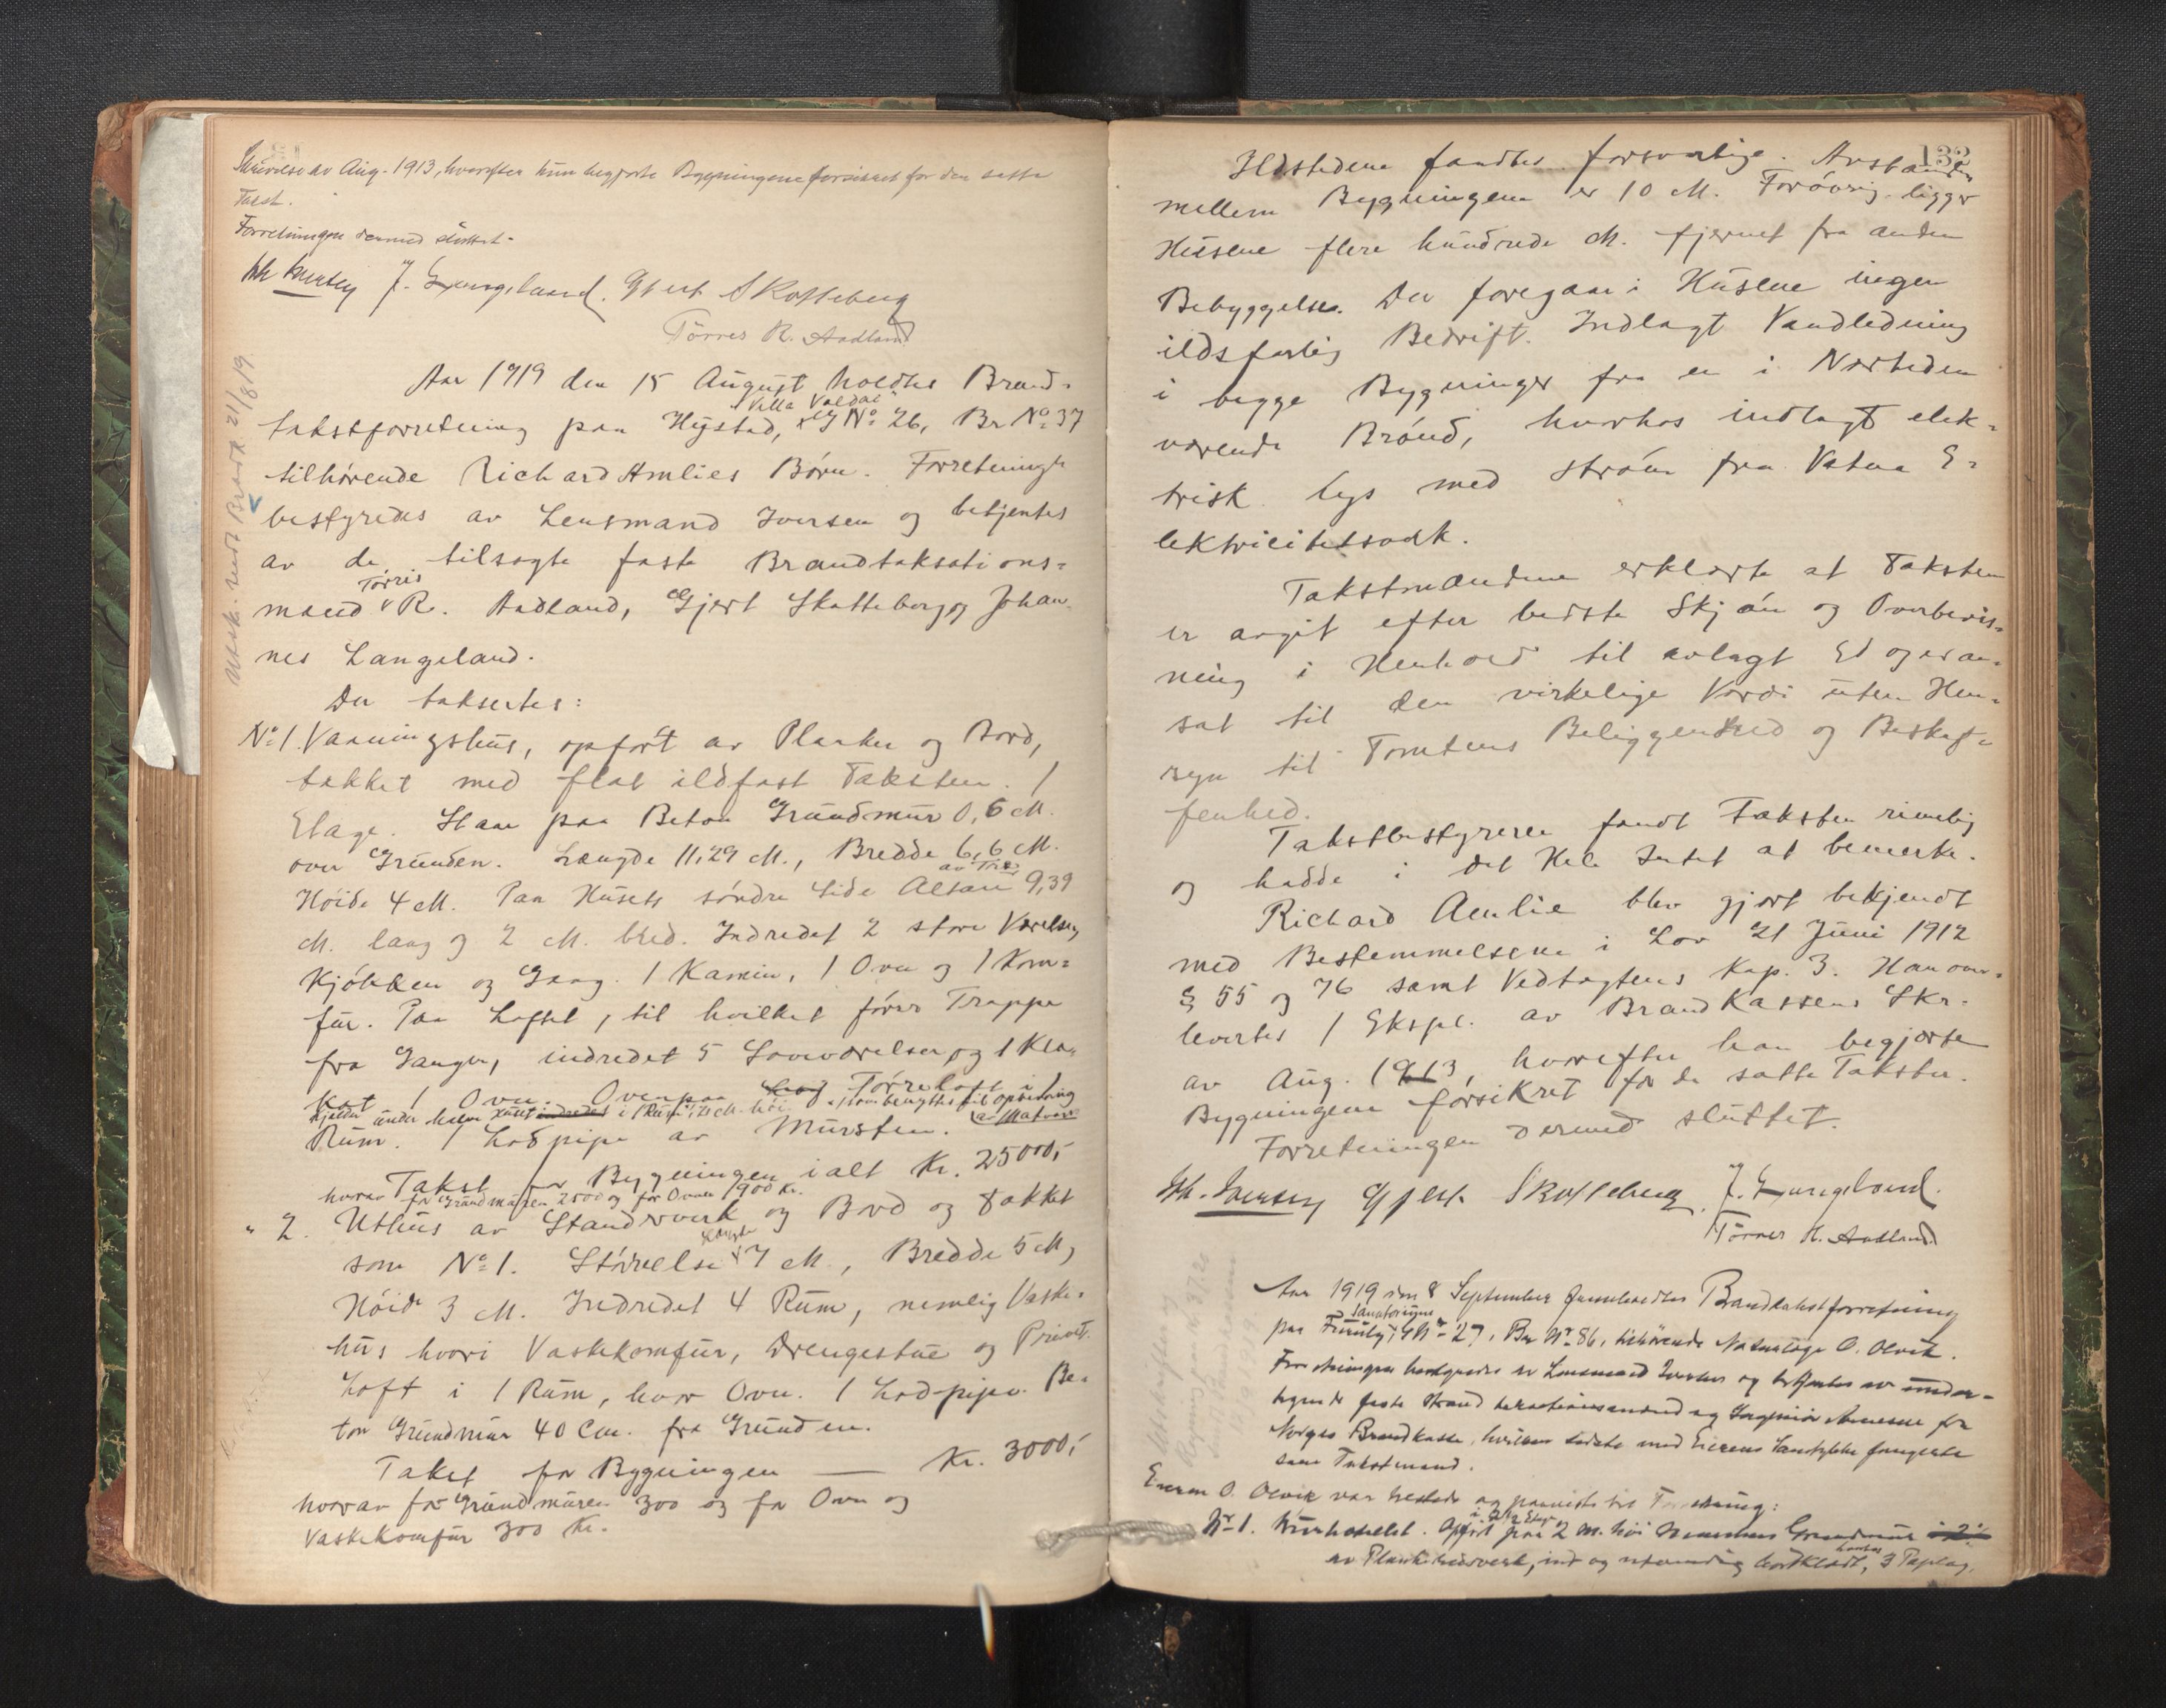 Skrivelse av Aug. 1913, hvorefter hun begjærte Bygningene forsikret for den satte
Takst.
Forretningen dermed sluttet.
J. Langeland. Gjert Skotteberg
Törres R. Aadland
Aar 1919 den 15 August holdtes Brand-
"Villa Valdal"
takstforretning paa Hystad, G No 26, Br No 37
tilhørende Richard Amlies Børn. Forretningen
bestyredes av Lensmand Iversen og betjentes
av de tilsagte faste Brandtaksations-
Törris
mænd R. Aadland, Gjert Skotteberg og Johan-
nes Langeland.
Der taksertes:
No 1. Vaaningshus, opført av Planker og Bord,
tækket med flat ildfast Taksten. 1
Etage. Staar paa Beton Grundmur 0,6 M.
over Grunden. Længde 11,29 M., Bredde 6,6 M.
av Træ
Höide 4 M. Paa Husets söndre Side Altan 9,39
M. lang og 2 M. bred. Indredet 2 store Værelser,
Kjökken og Gang. 1 Kamin, 1 Ovn og 1 Kom-
fur. Paa Loftet, til hvilket förer Trappe
fra Gangen, indredet 5 Soveværelser og 1 Klo-
set 1 Ovn. Ovenpaa Törreloft i
Kjelder under halve Huset indredet i 1 Rum, 2 M. höi, som benyttes til opbevaring av Matvarer
Rum. 1 Lodpipe av Mursten.
Takst for Bygningen ialt Kr. 25000,-
hvorav for Grundmuren 2500 og for Ovner 900 Kr.
" 2. Uthus av Standrverk og Bord og tækket
Længde
som No 1. Störrelse 7 M., Bredde 5 M,
Höide 3 M. Indredet 4 Rum, nemlig Vaske-
hus hvori Vaskekomfur, Drengestue og Privet.
Loft i 1 Rum, hvor Ovn. 1 Lodpipe. Be-
ton Grundmur 40 Cm. fra Grunden.
Takst for Bygningen — Kr. 3000,-
hvorav for Grundmuren 300 og for Ovn og
Vaskekomfur 300 Kr.
Utsk. sendt Brandk 21/8 19
132
Ildstedene fandtes forsvarlige. Avstanden
mellem Bygningene er 10 M. Forövrig ligger
Husene flere hundrede M. fjernet fra anden
Bebyggelse. Der foregaar i Husene ingen
ildsfarlig Bedrift. Indlagt Vandledning
i begge Bygninger fra en i Nærheden
værende Brönd, hvorhos indlagt elek-
trisk lys med Ström fra Vatna E-
lektricitetsverk.
Takstmændene erklærte at Taksten
er avgit efter bedste Skjön og Overbevis-
ning i Henhold til avlagt Ed og er an-
sat til den virkelige Værdi uten Hen-
syn til Tomtens Beliggenhed og Beskaf-
fenhed.
Takstbestyreren fandt Taksten rimelig
og hadde i det Hele Intet at bemerke.
Richard Amlie blev gjort bekjendt
med Bestemmelsene i Lov 21 Juni 1912
§ 55 og 76 samt Vedtægtens Kap. 3. Han over-
levertes 1 Ekspl. av Brandkassens Skr.
av Aug. 1913, hvorefter han begjærte
Bygningene forsikret for de satte Takster.
Forretningen dermed sluttet.
Gjert Skotteberg J. Langeland.
Törres R. Aadland
Aar 1919 den 8 September avholdtes Brandtakstforretning
Sanatorium
paa G No 27, Br No 86, tilhörende Naturlæge O. Olvik.
Forretningen bestyredes av Lensmand Iversen og betjentes av under-
tegnede faste Brandtaxationsmænd og Ingeniör for
Norges Brandkasse, hvilken sidste med Eierens Samtykke fungerte
som Takstmand.
Eieren O. Olvik var tilstede og paaviste til Forretning:
i 2 1/2 Etage
No 1. Kurhotellet. Opfört paa 2 M. höi Grundmur
av Plankebindverk, ind og utvendig bordklædt, 3 Paplag.